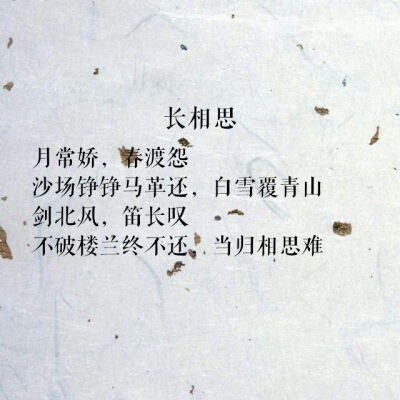 长相思
月常娇，春渡怨
沙场铮铮马革还，白雪覆青山
剑北风，笛长叹
不破楼兰终不还，当归相思难